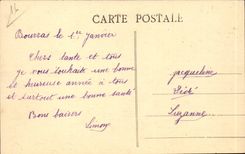 CARTE POSTALE
le 1er Janvier
Chers tante et tous
je vous souhaite une bonne
et heureuse année à tous
et surtout une bonne santé
Bons baisers
Jacqueline
Suzanne